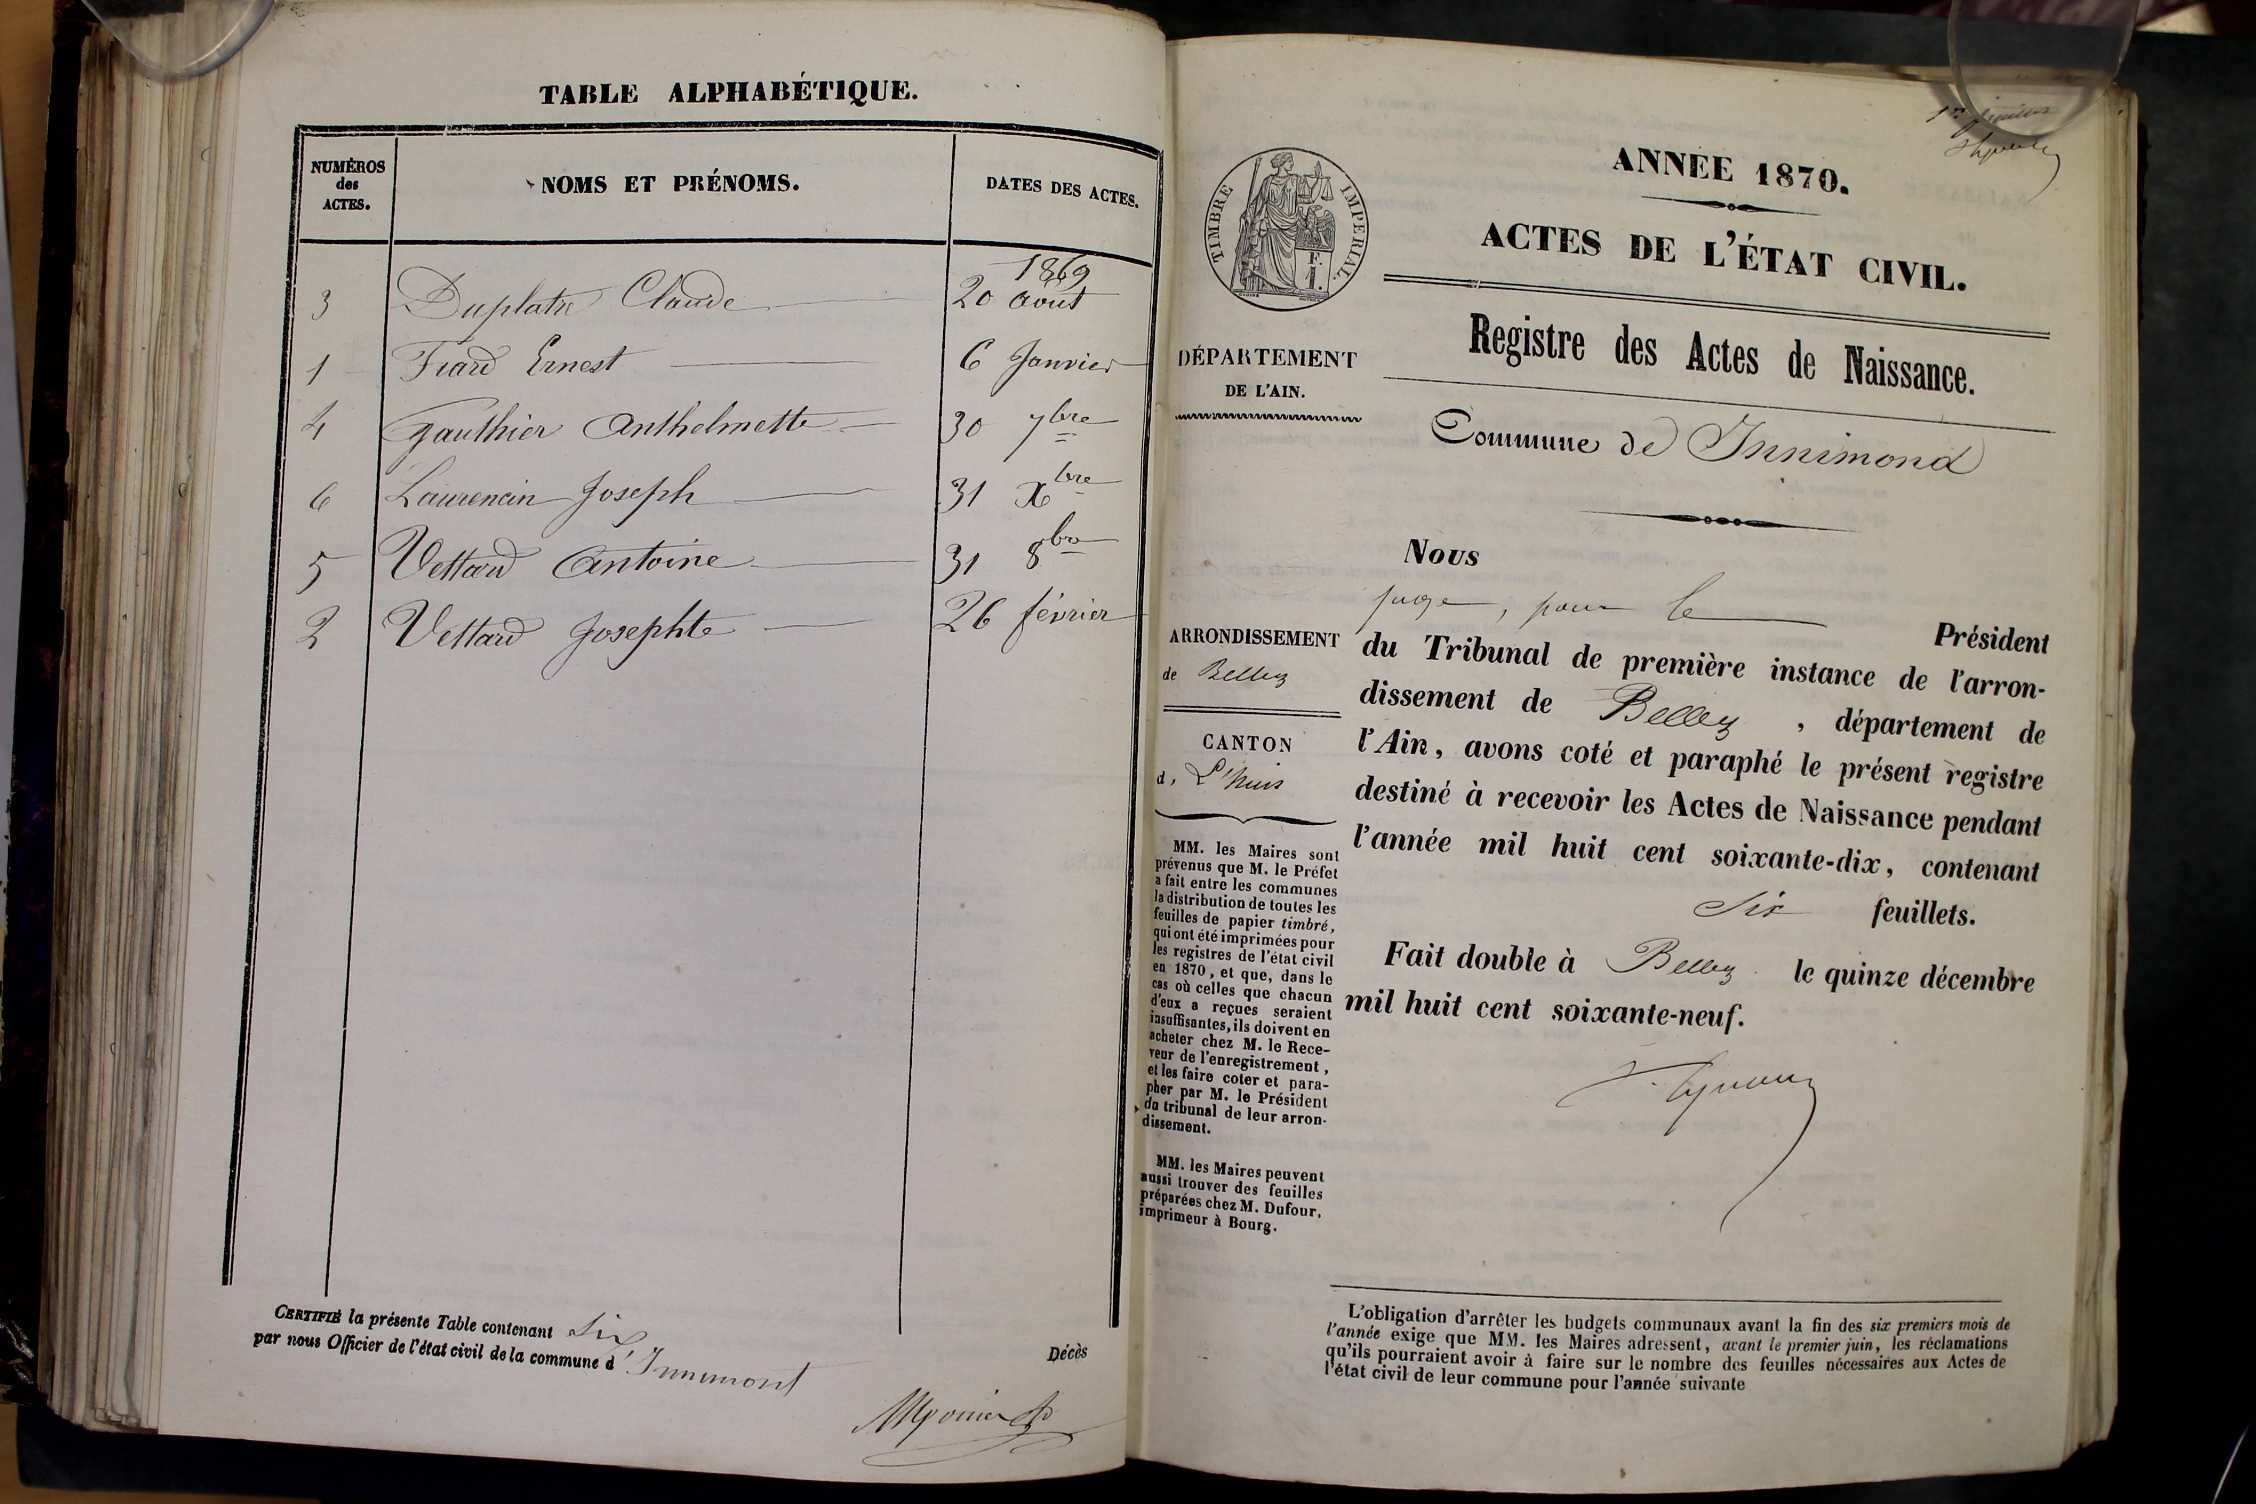 TABLE ALPHABÉTIQUE.
NUMÉROS
des
ACTES.
NOMS ET PRÉNOMS.
DATES DES ACTES.
1869
3 Duplatre Claude 20 août
1 Fiard Ernest 6 Janvier
4 Gauthier Anthelmette 30 7bre
6 Laurencin Joseph 31 Xbre
5 Vettard Antoine 31 8bre
2 Vettard Josephte 26 février
CERTIFIÉ la présente Table contenant Six Décès
par nous Officier de l'état civil de la commune d'Innimont
ANNÉE 1870.
ACTES DE L'ÉTAT CIVIL.
TIMBRE IMPERIAL.
F.
1.
Registre des Actes de Naissance.
DÉPARTEMENT
DE L'AIN.
Commune de Innimond
Nous
juge, pour le Président
du Tribunal de première instance de l'arron-
dissement de Belley, département de
l'Ain, avons coté et paraphé le présent registre
destiné à recevoir les Actes de Naissance pendant
l'année mil huit cent soixante-dix, contenant
Six feuillets.
Fait double à Belley le quinze décembre
mil huit cent soixante-neuf.
ARRONDISSEMENT
de Belley
CANTON
d, L'huis
MM. les Maires sont
prévenus que M. le Préfet
a fait entre les communes
la distribution de toutes les
feuilles de papier timbré,
qui ont été imprimées pour
les registres de l'état civil
en 1870, et que, dans le
cas où celles que chacun
d'eux a reçues seraient
insuffisantes, ils doivent en
acheter chez M. le Rece-
veur de l'enregistrement,
et les faire coter et para-
pher par M. le Président
du tribunal de leur arron-
dissement.
MM. les Maires peuvent
aussi trouver des feuilles
préparées chez M. Dufour,
imprimeur à Bourg.
L'obligation d'arrêter les budgets communaux avant la fin des six premiers mois de
l'année exige que MM. les Maires adressent, avant le premier juin, les réclamations
qu'ils pourraient avoir à faire sur le nombre des feuilles nécessaires aux Actes de
l'état civil de leur commune pour l'année suivante